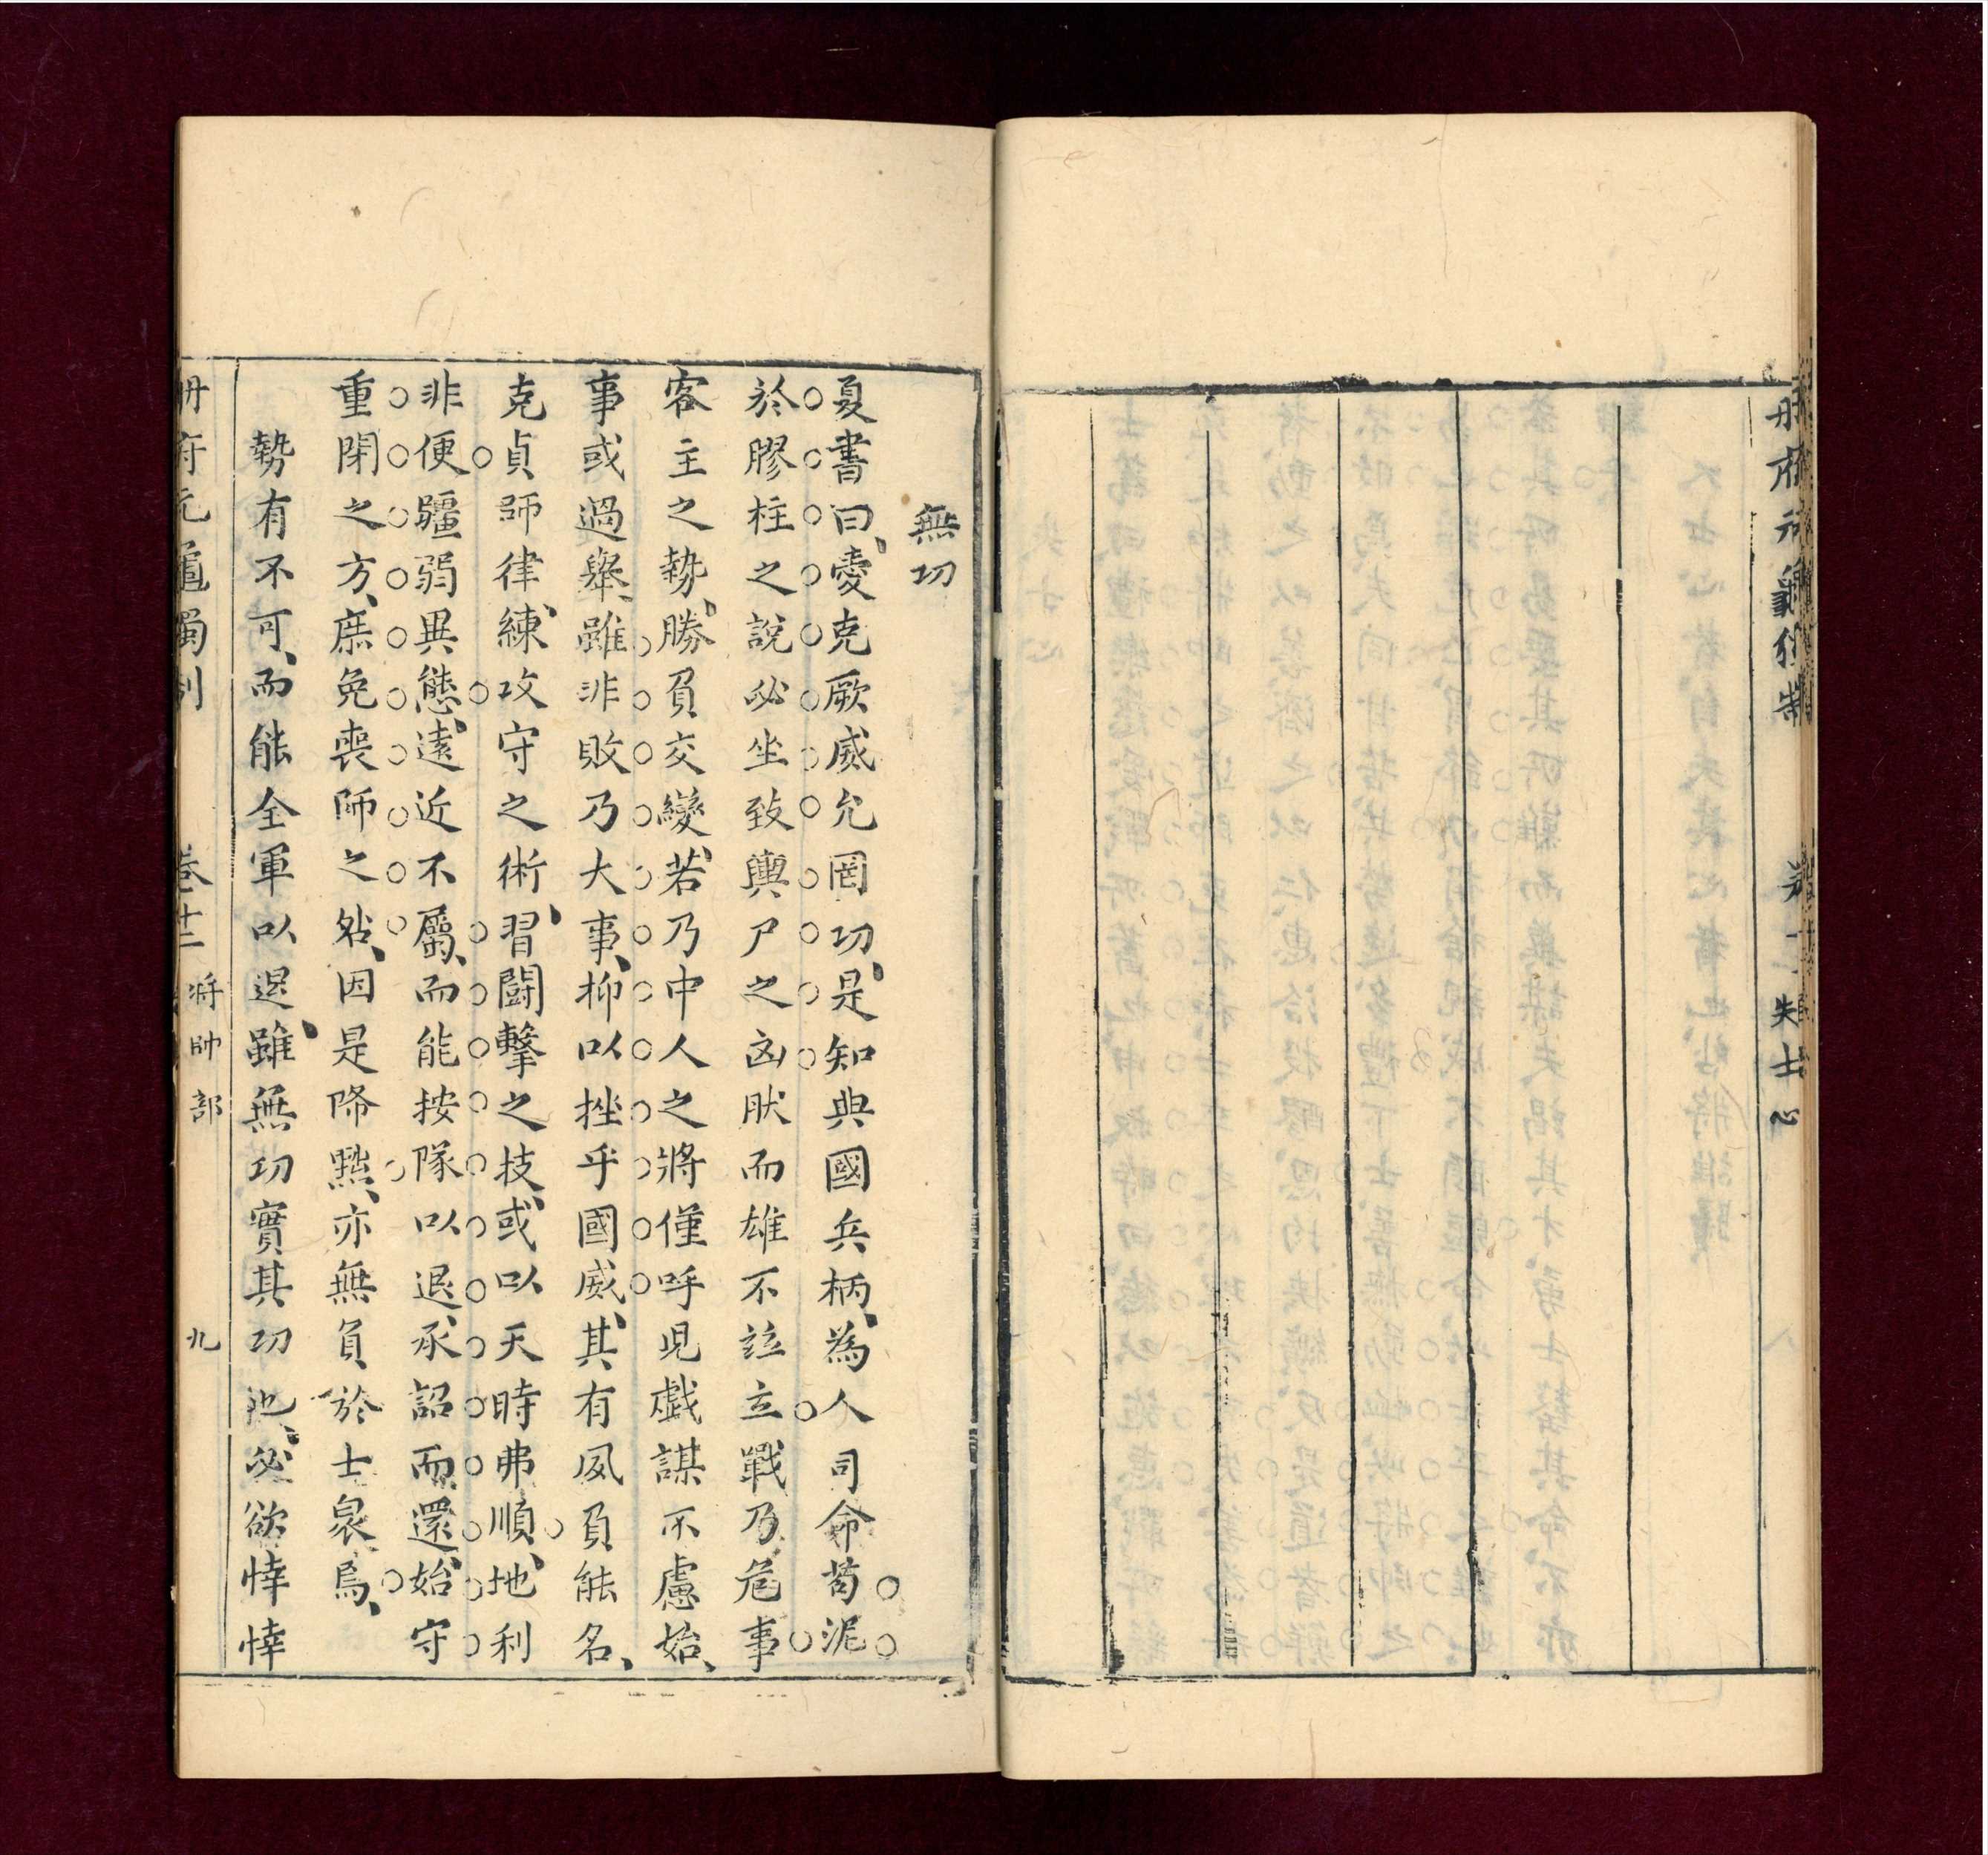 册府元龜獨制 卷十二 失士心
無功
夏書曰愛克厥威允罔功是知典國兵柄為人司命苟泥
於膠柱之說必坐致輿尸之凶狀而雄不竝立戰乃危事
客主之勢勝負交變若乃中人之將僅呼兒戲謀不慮始
事或過舉雖非敗乃大事抑以挫乎國威其有夙負能名
克貞師律練攻守之術習鬪擊之技或以天時弗順地利
非便疆弱異態遠近不屬而能按隊以退承詔而還始守
重閉之方庶免喪師之咎因是降黜亦無負於士衆焉
勢有不可而能全軍以退雖無功實其功也必欲悻悻
册府元龜獨制 卷十二 將帥部 九